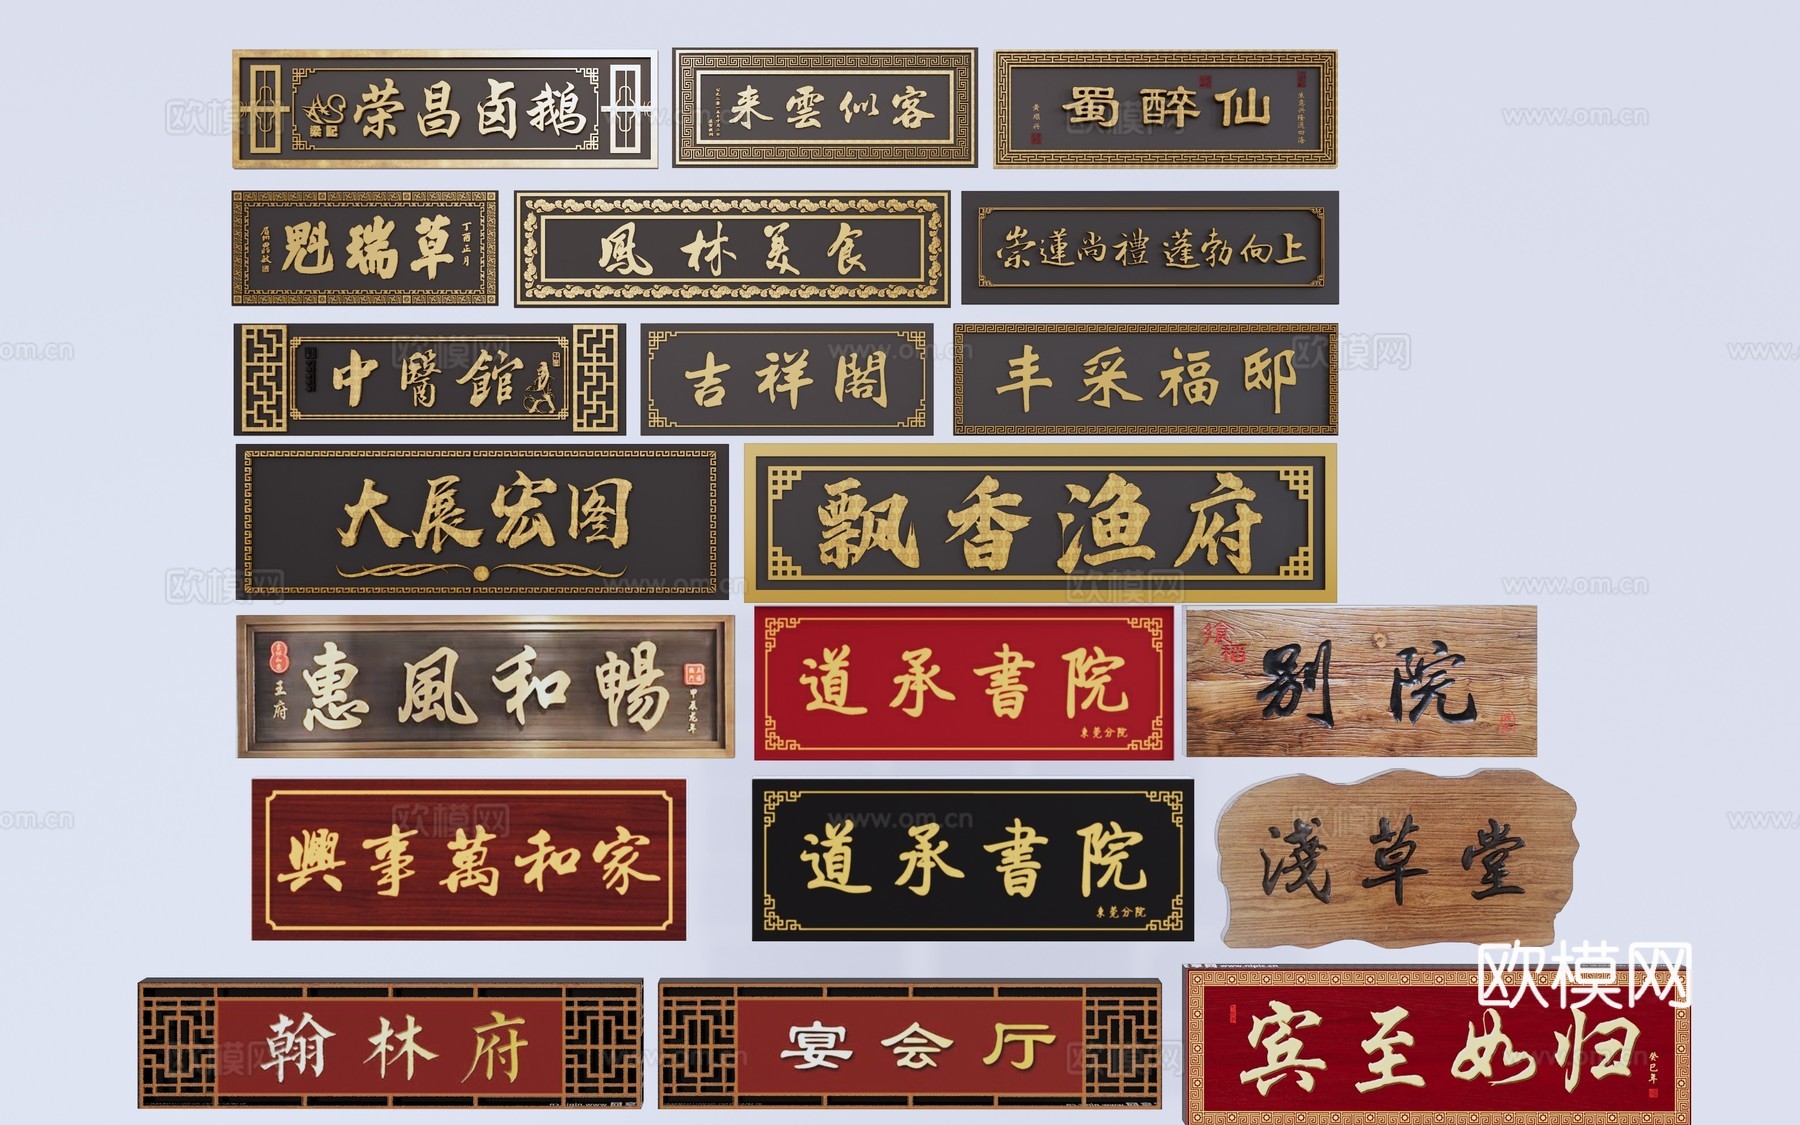 梁記 荣昌卤鹅
来雲似客
蜀醉仙
黄順兴
魁瑞草
丁酉正月
凤林美食
崇蓮尚禮 蓬勃向上
中醫館
吉祥閣
丰采福邸
大展宏图
飘香渔府
惠風和暢
王府
甲辰龙年
道承書院
東莞分院
别院
興事萬和家
道承書院
東莞分院
淺草堂
翰林府
宴会厅
宾至如归
癸巳年
欧模网
www.om.cn